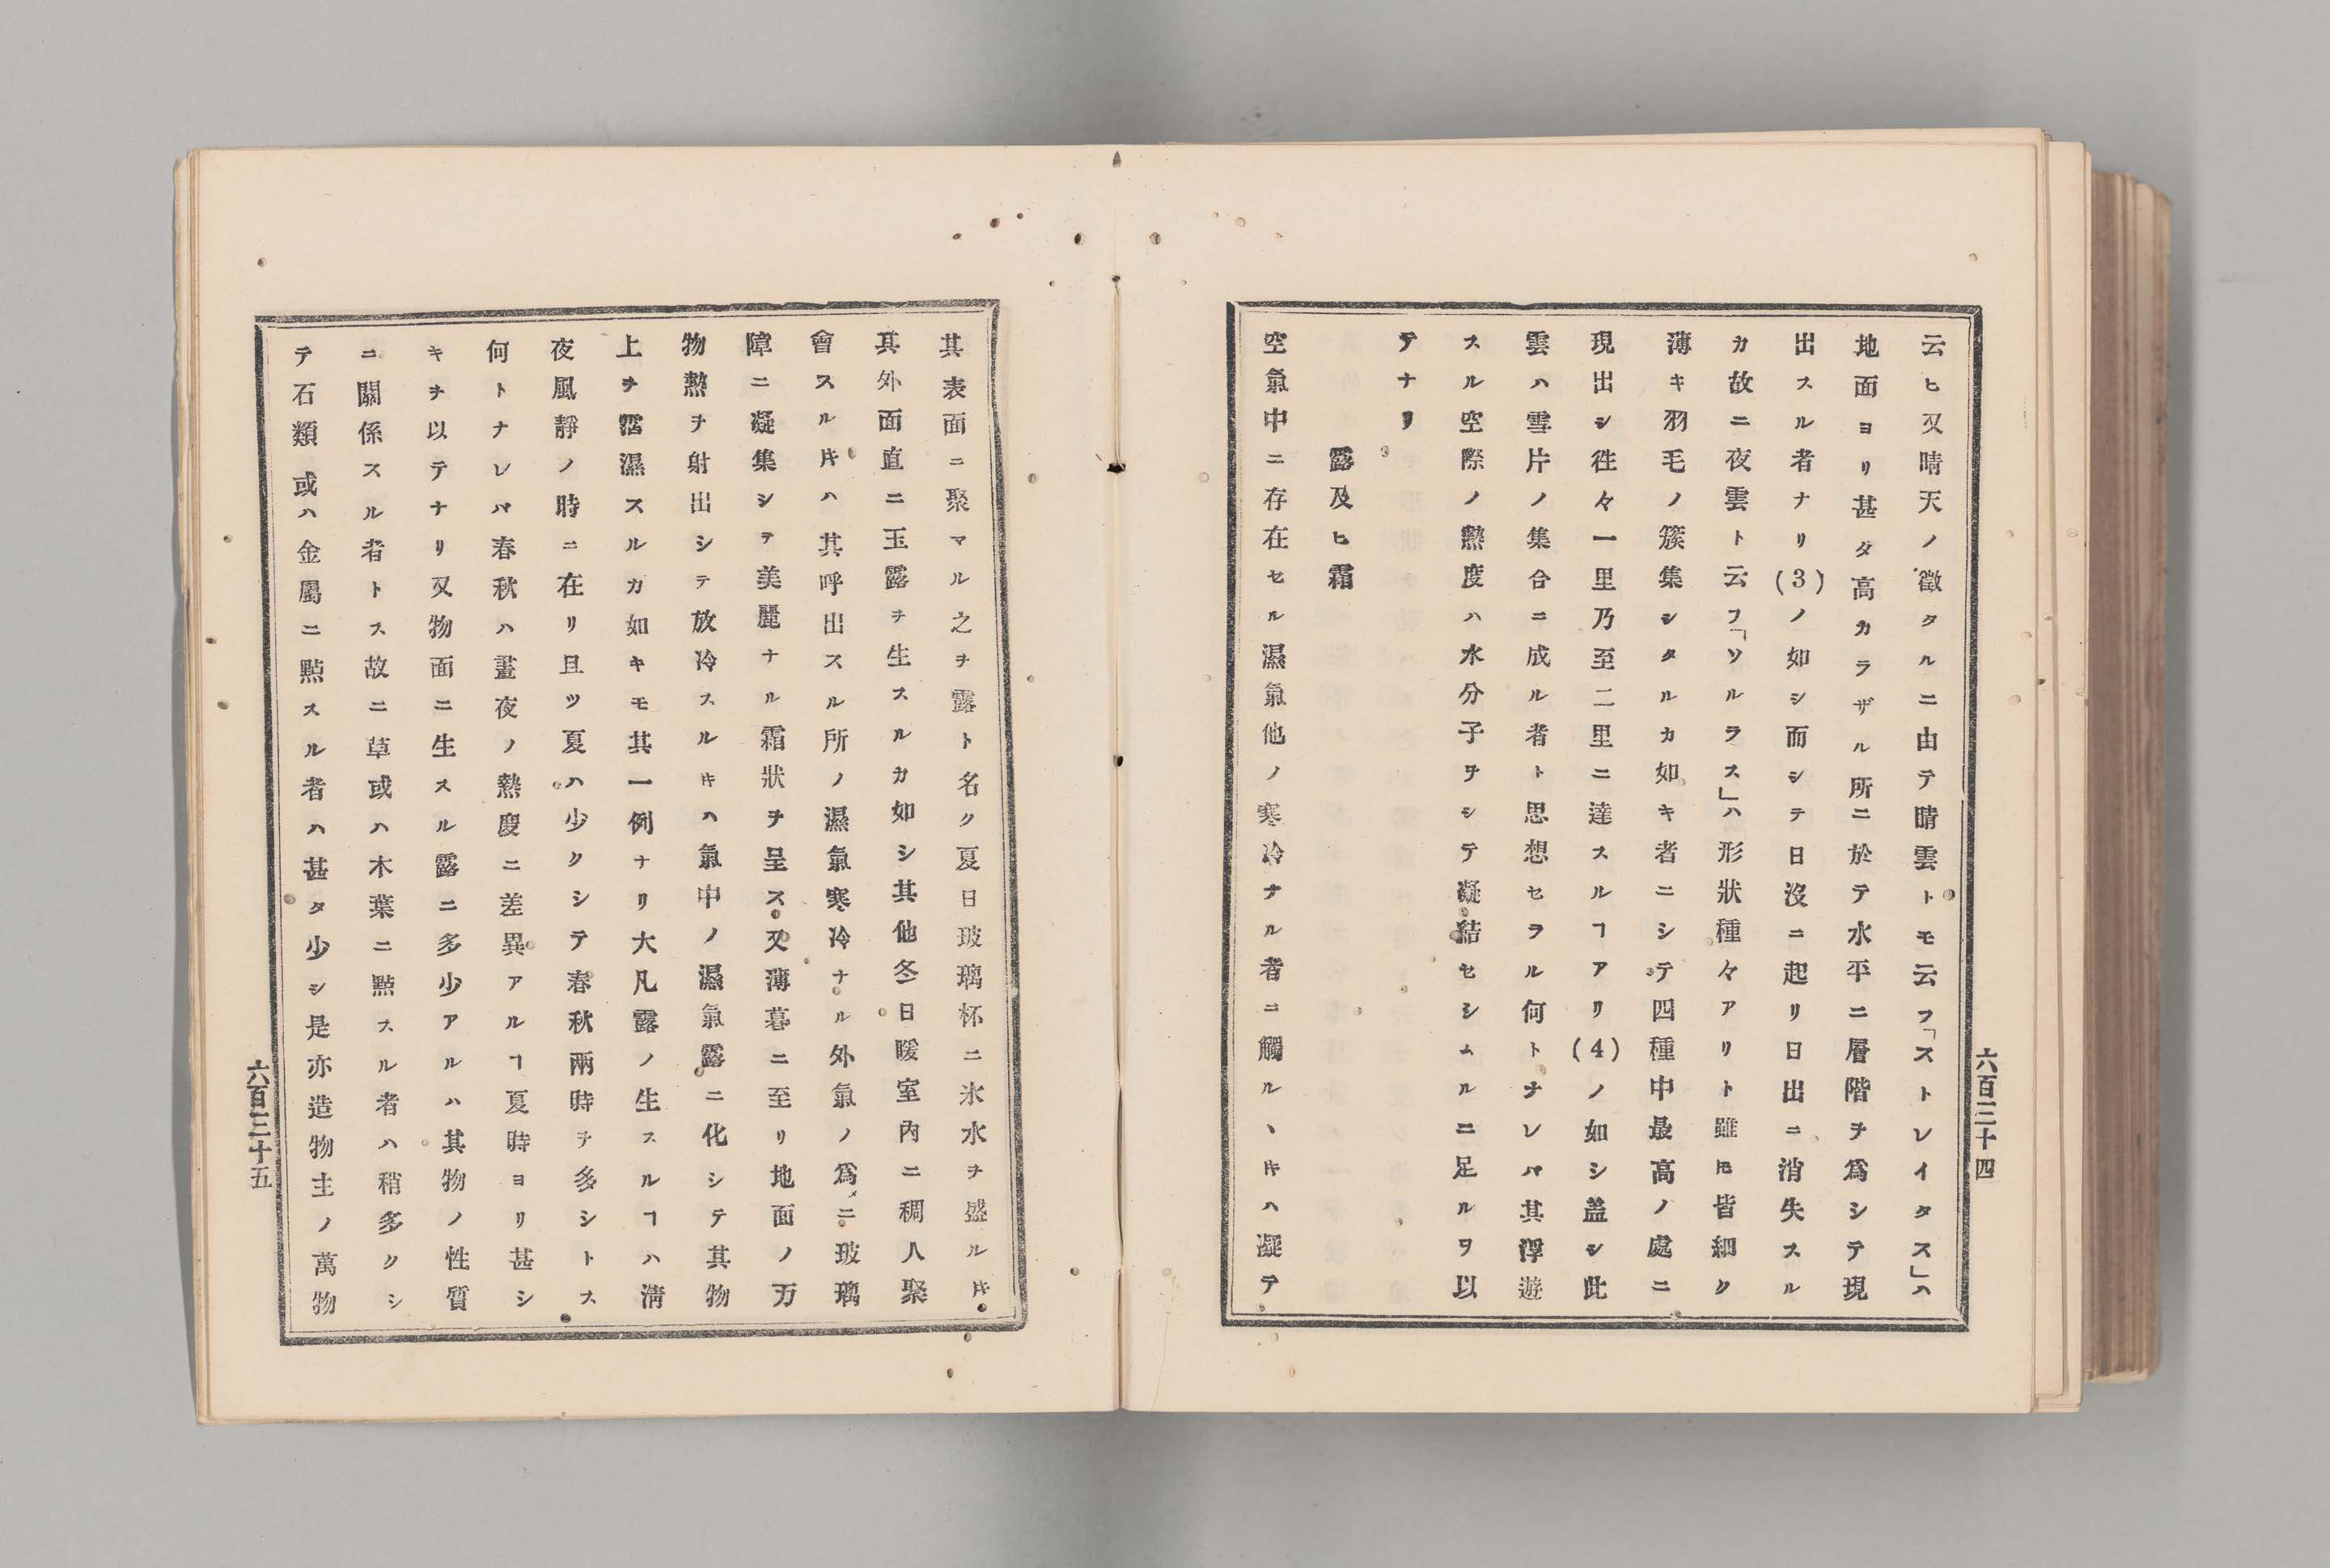 云ヒ又晴天ノ徵タルニ由テ晴雲トモ云フ「ストレイタス」ハ
地面ヨリ甚タ高カラザル所ニ於テ水平ニ層階ヲ爲シテ現
出スル者ナリ(3)ノ如シ而シテ日沒ニ起リ日出ニ消失スル
カ故ニ夜雲ト云フ「ソルラス」ハ形狀種々アリト雖𪜈皆細ク
薄キ羽毛ノ簇集シタルカ如キ者ニシテ四種中最高ノ處ニ
現出シ徃々一里乃至二里ニ達スルヿアリ(4)ノ如シ盖シ此
雲ハ雪片ノ集合ニ成ル者ト思想セラル何トナレバ其浮遊
スル空際ノ熱度ハ水分子ヲシテ凝結セシムルニ足ルヲ以
テナリ
露及ヒ霜
空氣中ニ存在セル濕氣他ノ寒冷ナル者ニ觸ルヽ𪜈ハ凝テ
六百三十四
其表面ニ聚マル之ヲ露ト名ク夏日玻璃杯ニ氷水ヲ盛ル𪜈
其外面直ニ玉露ヲ生スルカ如シ其他冬日暖室內ニ稠人聚
會スル𪜈ハ其呼出スル所ノ濕氣寒冷ナル外氣ノ爲ニ玻璃
障ニ凝集シテ美麗ナル霜狀ヲ呈ス又薄暮ニ至リ地面ノ万
物熱ヲ射出シテ放冷スル𪜈ハ氣中ノ濕氣露ニ化シテ其物
上ヲ霑濕スルカ如キモ其一例ナリ大凡露ノ生スルヿハ淸
夜風靜ノ時ニ在リ且ツ夏ハ少クシテ春秋兩時ヲ多シトス
何トナレバ春秋ハ晝夜ノ熱度ニ差異アルヿ夏時ヨリ甚シ
キヲ以テナリ又物面ニ生スル露ニ多少アルハ其物ノ性質
ニ關係スル者トス故ニ草或ハ木葉ニ點スル者ハ稍多クシ
テ石類或ハ金屬ニ點スル者ハ甚タ少シ是亦造物主ノ萬物
六百三十五